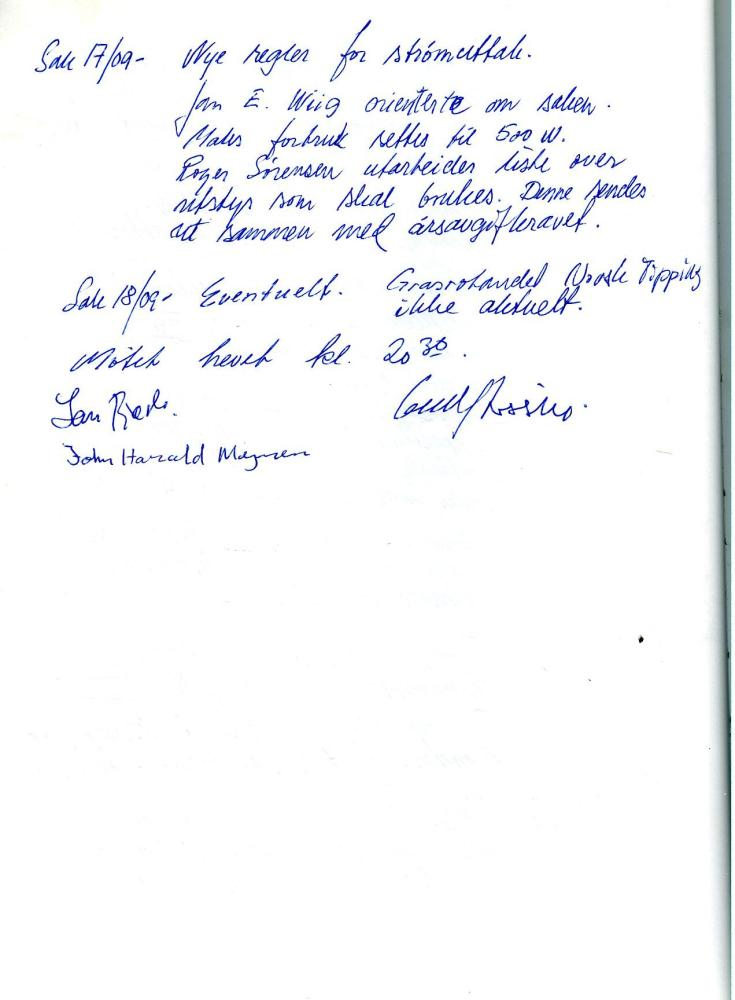 Sak 17/09- Nye regler for strömuttak.
Jan E. Wiig orienterte om saken.
Maks forbruk settes til 500 W.
Roger Sörensen utarbeider liste over
utstyr som skal brukes. Denne sendes
ut sammen med årsavgiftkravet.
Sak 18/09- Eventuelt. Grasrotandel Norsk Tipping
ikke aktuelt.
Mötet hevet kl. 20 30.
Jan
John Harald